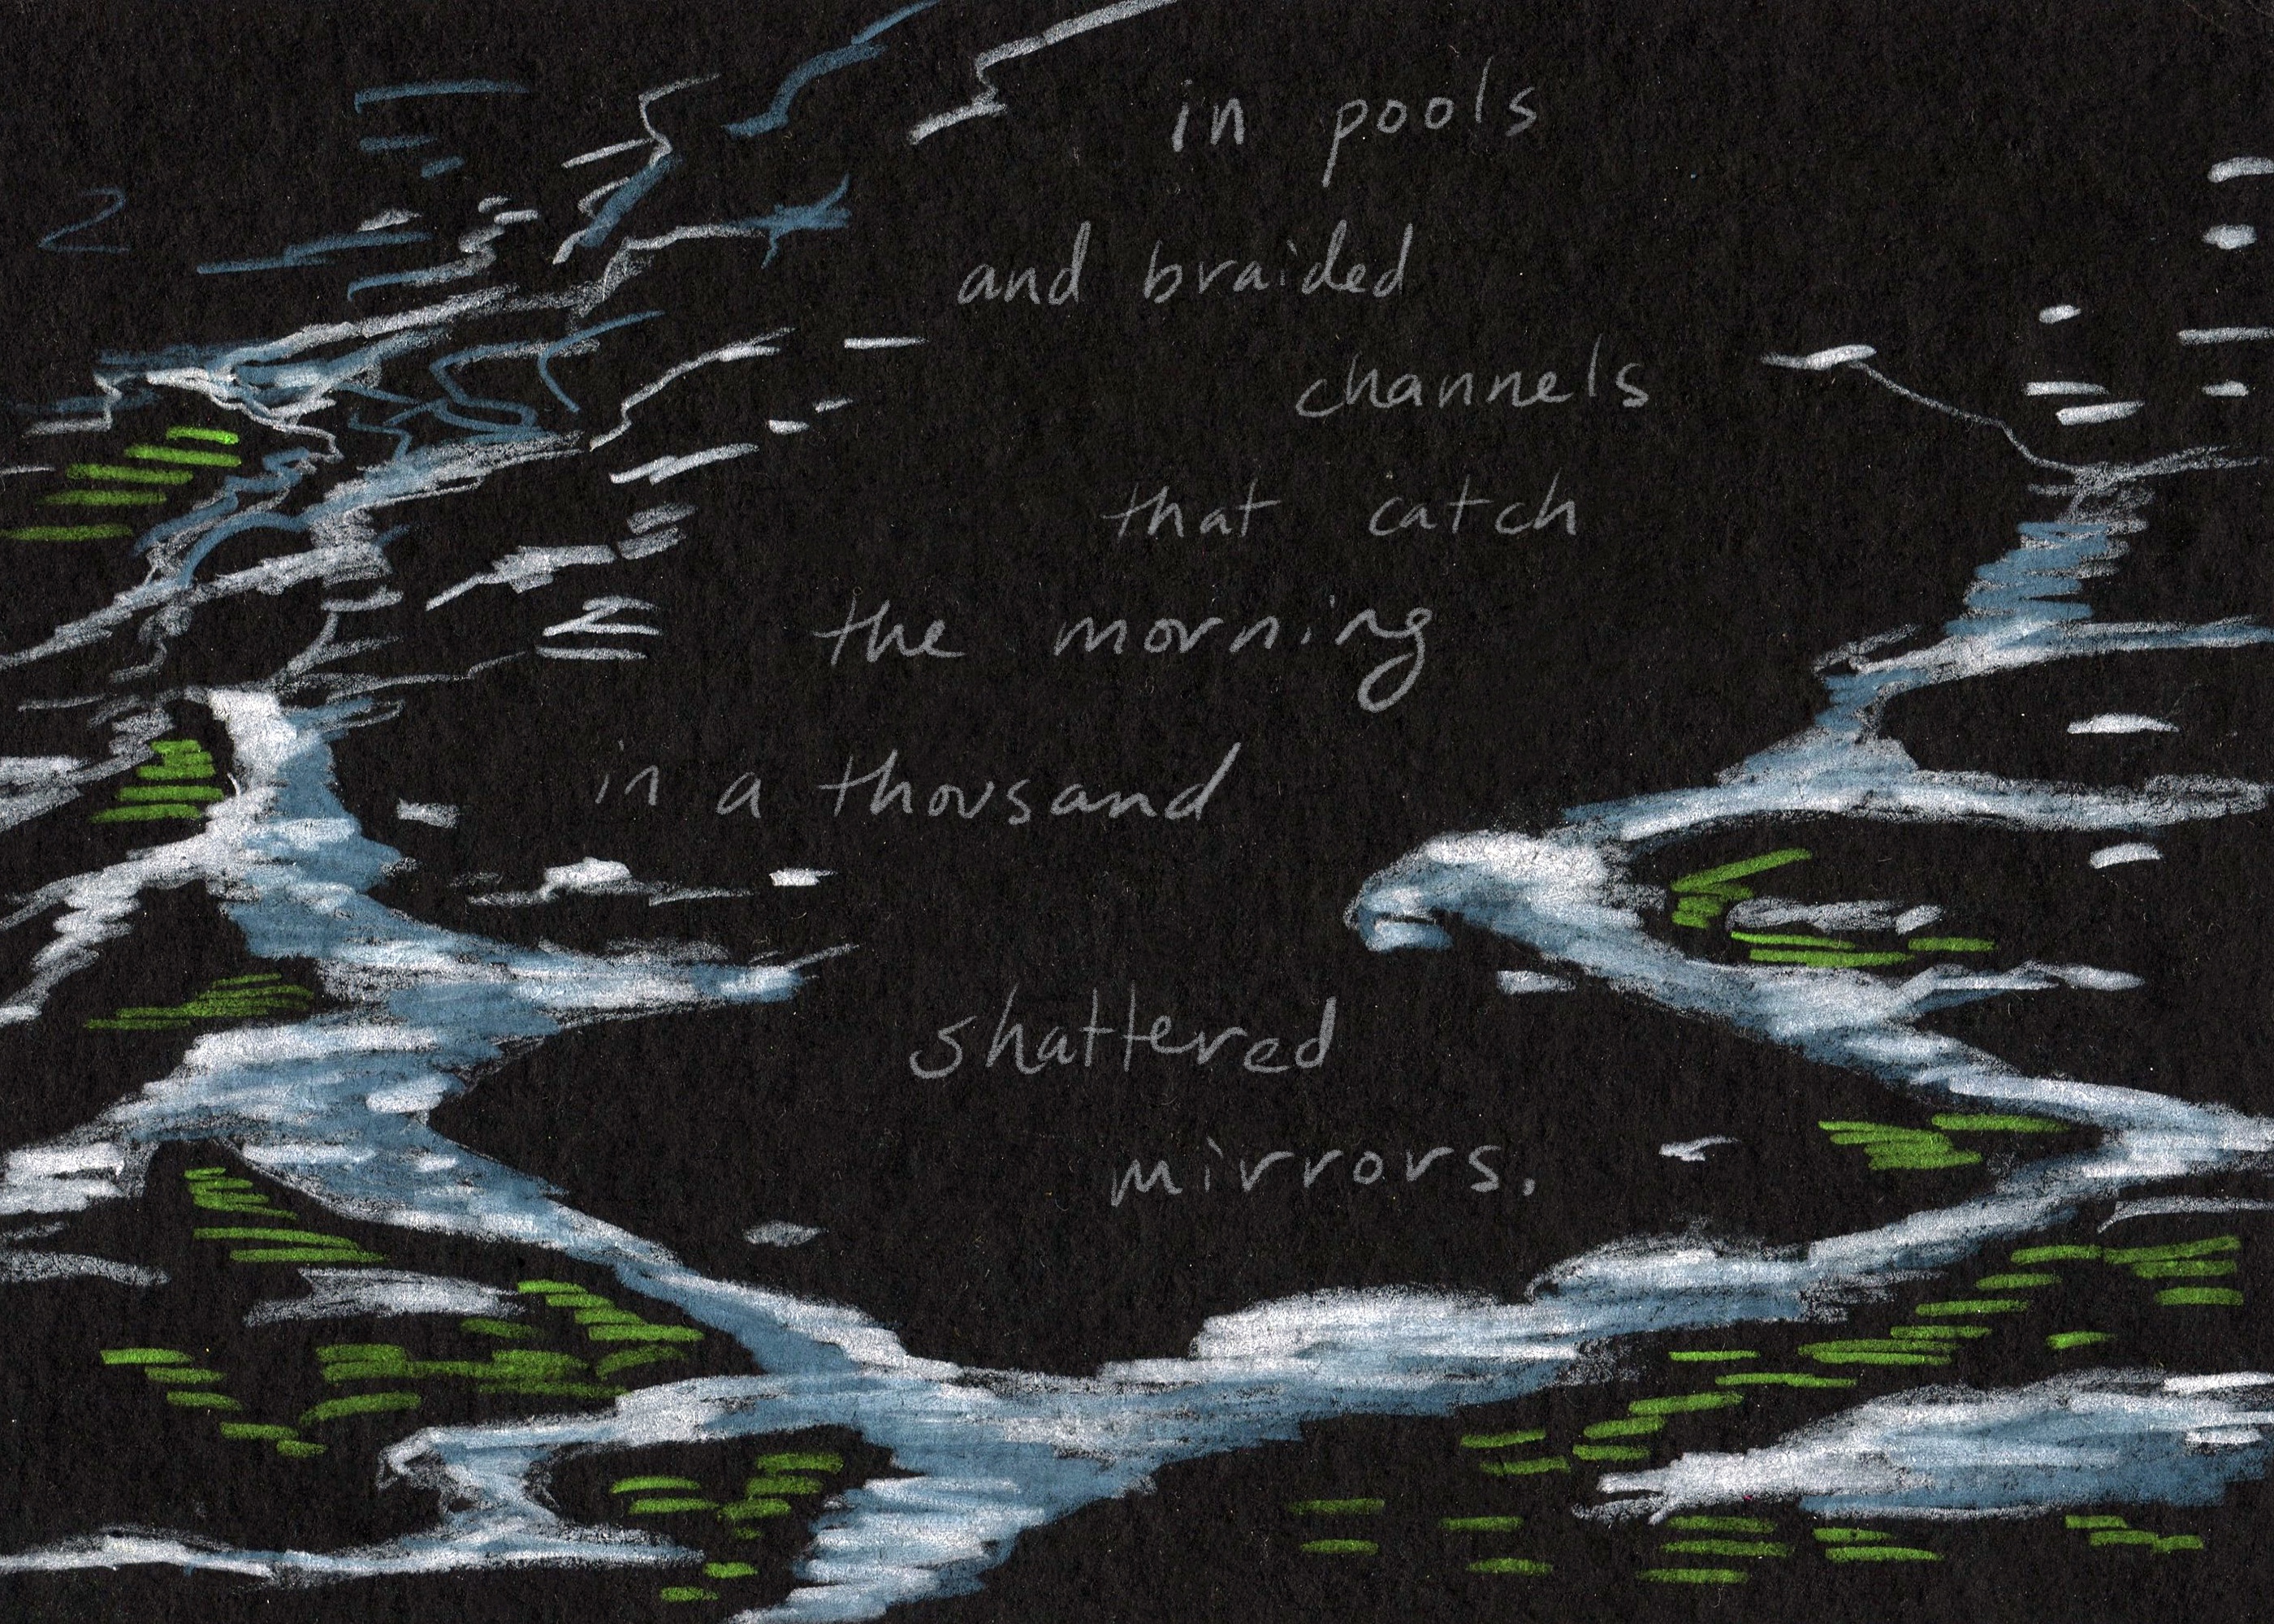 in pools
and braided
channels
that catch
the morning
in a thousand
shattered
mirrors.